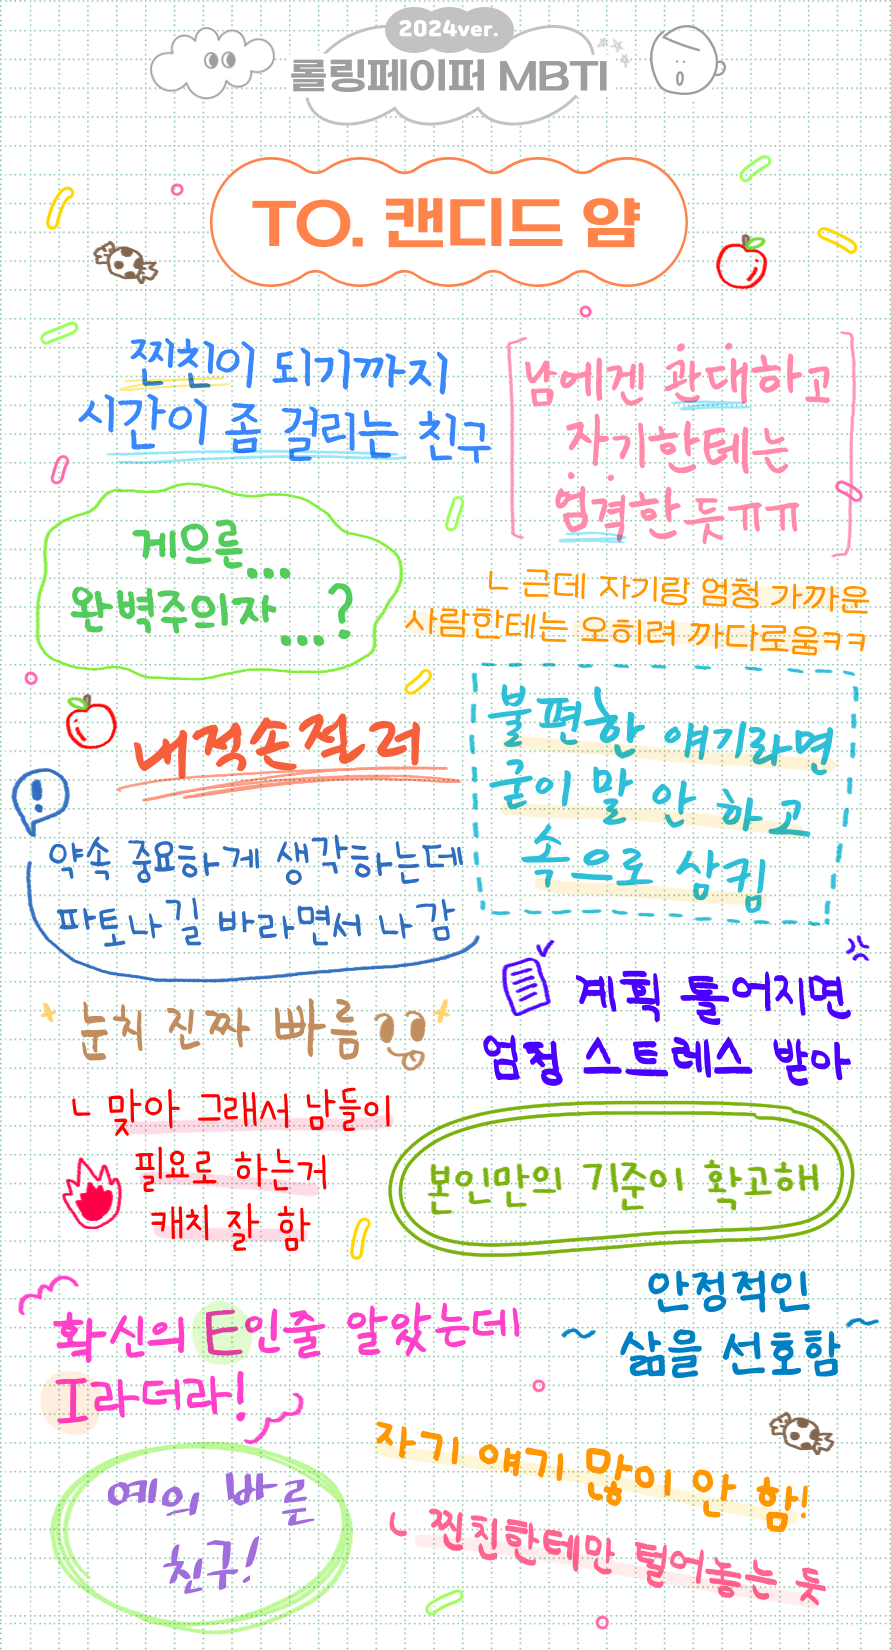 2024ver.
롤링페이퍼 MBTI
TO. 캔디드 얌
찐친이 되기까지
시간이 좀 걸리는 친구
남에겐 관대하고
자기한테는
엄격한 듯ㅠㅠ
게으른...
완벽주의자...?
ㄴ 근데 자기랑 엄청 가까운
사람한테는 오히려 까다로움ㅋㅋ
내적손절러
불편한 얘기라면
굳이 말 안 하고
속으로 삼킴
약속 중요하게 생각하는데
파토나길 바라면서 나감
눈치 진짜 빠름
ㄴ 맞아 그래서 남들이
필요로 하는거
캐치 잘 함
계획 틀어지면
엄청 스트레스 받아
본인만의 기준이 확고해
확신의 E인줄 알았는데
I라더라!
안정적인
삶을 선호함
예의 바른
친구!
자기 얘기 많이 안 함!
ㄴ 찐친한테만 털어놓는 듯